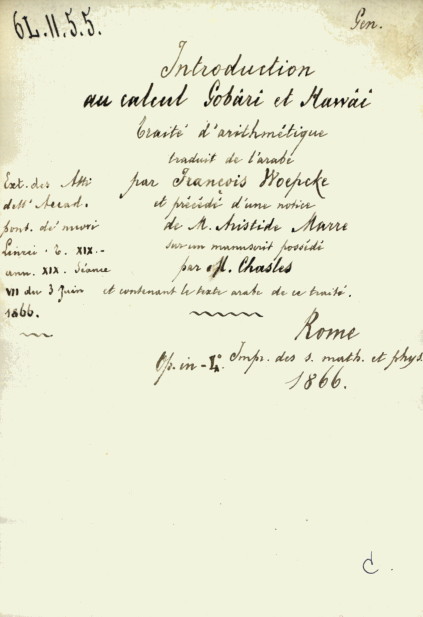 6L.11.5.5.
Gen.
Introduction
au calcul Gobâri et Hawâi
Traité d'arithmétique
traduit de l'arabe
par François Woepcke
et précédé d'une notice
de M. Aristide Marre
sur un manuscrit possédé
par M. Chasles
et contenant le texte arabe de ce traité.
Ext. des Atti
dell' Accad.
pont. de' nuovi
Lincei. t. XIX.-
ann. XIX. Séance
VII du 3 Juin
1866.
Rome
Op. in-4°. Imp. des s. math. et phys.
1866.
C.